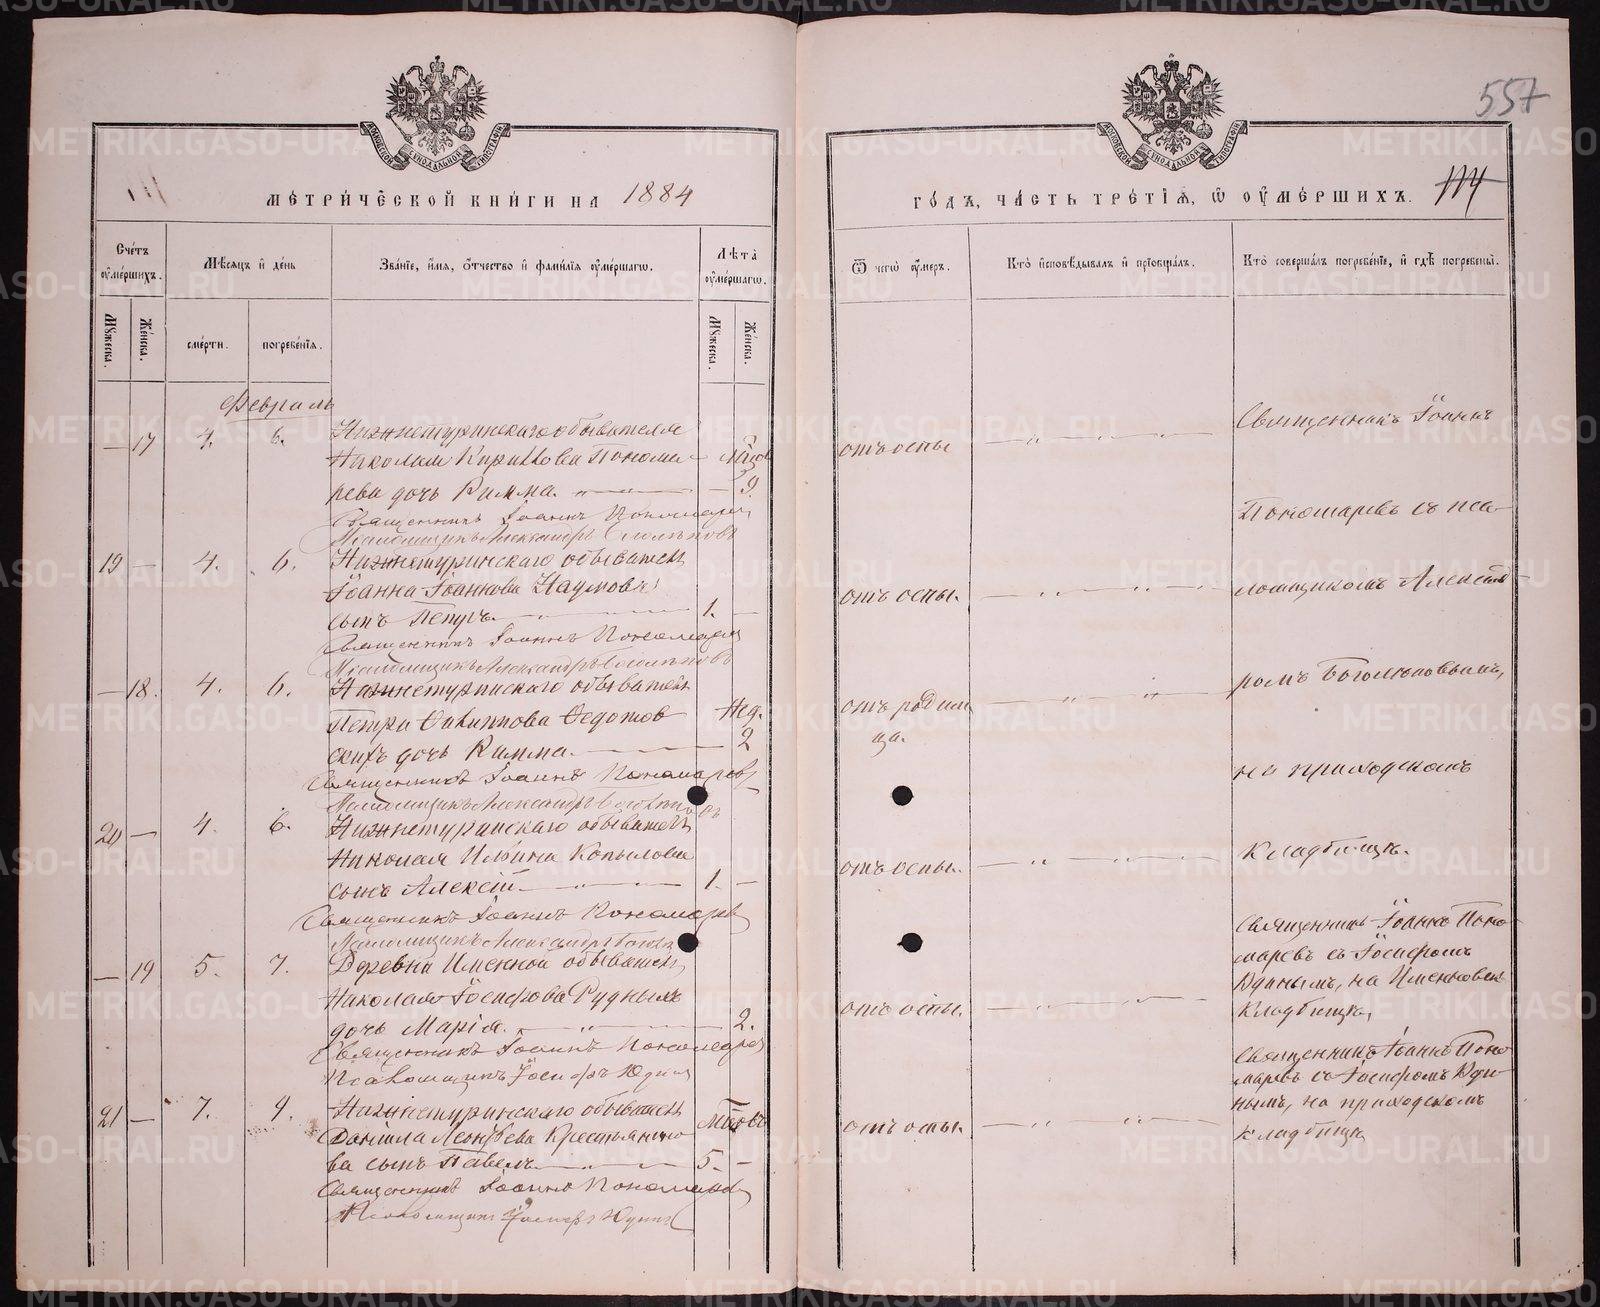 557
111
МЕТРИЧЕСКОЙ КНИГИ НА 1884
ГОДЪ, ЧАСТЬ ТРЕТІЯ, Ѿ ОУМЕРШИХЪ. 114
МОСКОВСКОЙ СУНОДАЛЬНОЙ ТИПОГРАФІИ
МОСКОВСКОЙ СУНОДАЛЬНОЙ ТИПОГРАФІИ
Счетъ оумершихъ.
Мѣсяцъ и день
Званіе, имя, отчество и фамилія оумершагѡ.
Лѣта оумершагѡ.
Ѿ чегѡ оумеръ.
Кто исповѣдывалъ и пріобщалъ.
Кто совершалъ погребеніе, и гдѣ погребены.
Мужеска. Женска.
смерти. погребенія.
Мужеска. Женска.
Февраль
— 17 4. 6. Нижнетуринскаго обывателя
Николая Кириллова Понома-
рева дочь Римма. — 9.
отъ оспы
Священникъ Іоаннъ Пономаревъ
Псаломщикъ Александръ Боголюповъ
19 — 4. 6. Нижнетуринскаго обывателя
Іоанна Іоаннова Наумова
сынъ Петръ. 1. —
отъ оспы.
Священникъ Іоаннъ Пономаревъ
Псаломщикъ Александръ Боголюповъ
— 18. 4. 6. Нижнетуринскаго обывателя
Петра Филиппова Федотов
скихъ дочь Римма. Нед. 2
отъ родим
ца.
Священникъ Іоаннъ Пономаревъ
Псаломщикъ Александръ Боголюповъ
20 — 4. 6. Нижнетуринскаго обывателя
Николая Ильина Копылова
сынъ Алексій 1. —
отъ оспы.
Священникъ Іоаннъ Пономаревъ
Псаломщикъ Александръ
Священникъ Іоаннъ
Пономаревъ съ пса-
ломщикомъ Александ-
ромъ Боголюповымъ,
на приходскомъ
кладбищѣ.
— 19 5. 7. Деревни Именной обывателя
Николая Іосифова Рудныхъ
дочь Марія. 2.
отъ оспы.
Священникъ Іоаннъ Пономаревъ
Псаломщикъ Іосифъ Юдинъ
Священникъ Іоаннъ Поно-
маревъ съ Іосифомъ
Юдинымъ, на Именновск
кладбищѣ,
21 — 7. 9. Нижнетуринскаго обывателя
Даніила Леонтьева Крестьянино
ва сынъ Павелъ 5. —
отъ оспы.
Священникъ Іоаннъ Пономаревъ
Псаломщикъ Іосифъ Юдинъ
Священникъ Іоаннъ Поно-
маревъ съ Іосифомъ Юди-
нымъ, на приходскомъ
кладбищѣ
METRIKI.GASO-URAL.RU